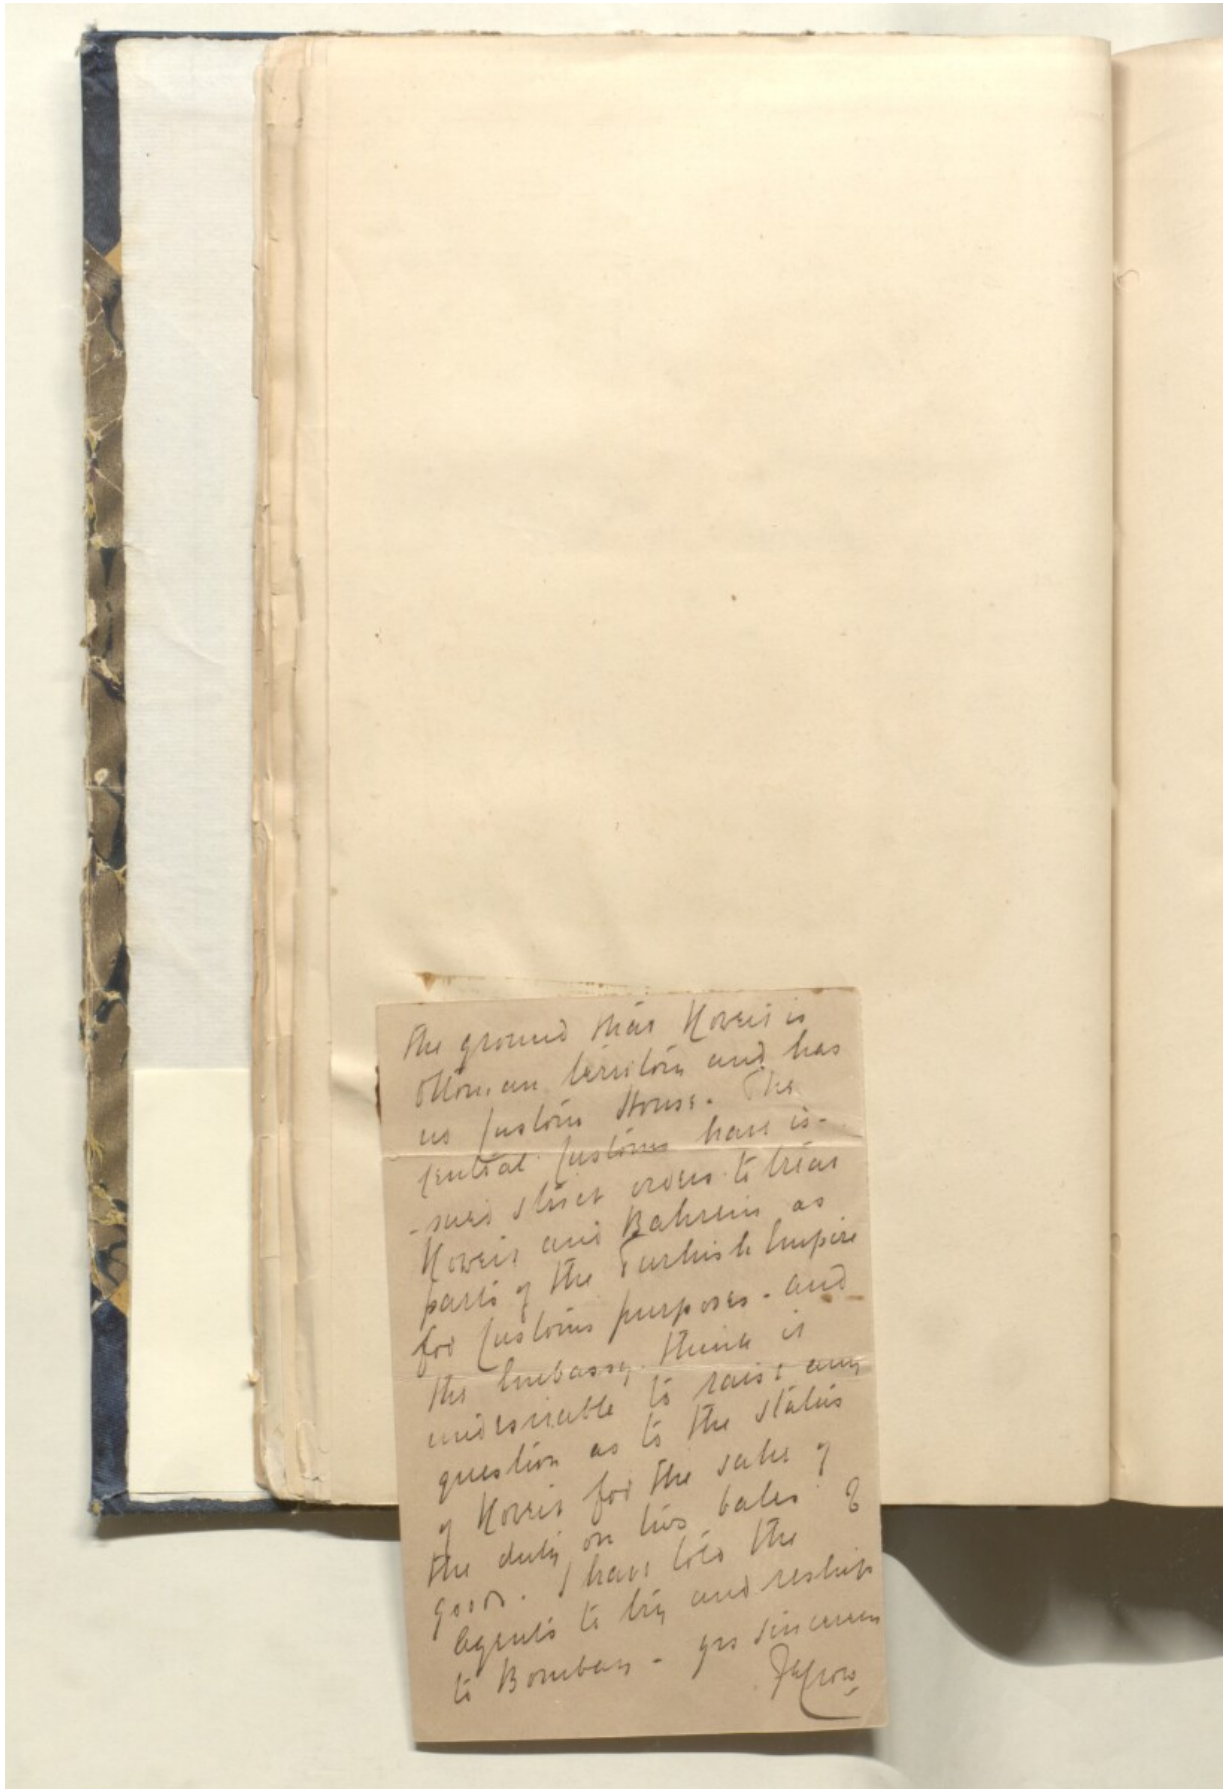 the ground that Koweit is
Ottoman territory and has
no Customs House. The
Central Customs have is-
-sued strict orders to treat
Koweit and Bahrein as
parts of the Turkish Empire
for Customs purposes - and
the Embassy think it
undesirable to raise any
question as to the status
of Koweit for the sake of
the duty on two bales of
goods. I have told the
Agents to try and reship
to Bombay - yrs sincerely
FECrow